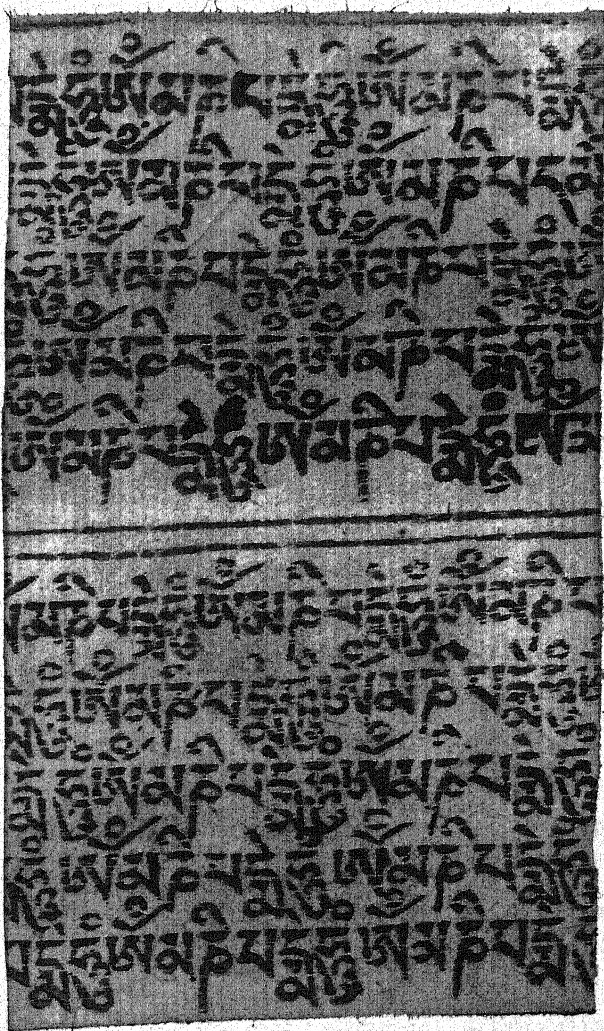 པདྨེཧཱུྃཨོཾམཎིཔདྨེཧཱུྃཨོཾམཎིཔདྨེ
དྨེཧཱུྃཨོཾམཎིཔདྨེཧཱུྃཨོཾམཎིཔ
ཧཱུྃཨོཾམཎིཔདྨེཧཱུྃཨོཾམཎིཔདྨེཧཱུྃ
ཧཱུྃཨོཾམཎིཔདྨེཧཱུྃཨོཾམཎིཔདྨེཧཱུྃཨོཾ
ཨོཾམཎིཔདྨེཧཱུྃཨོཾམཎིཔདྨེཧཱུྃཨོཾམ
མཎིཔདྨེཧཱུྃཨོཾམཎིཔདྨེཧཱུྃཨོཾམཎིཔ
དྨེཧཱུྃཨོཾམཎིཔདྨེཧཱུྃཨོཾམཎིཔདྨེཧཱུྃ
དྨེཧཱུྃཨོཾམཎིཔདྨེཧཱུྃཨོཾམཎིཔདྨེཧཱུྃ
ཧཱུྃཨོཾམཎིཔདྨེཧཱུྃཨོཾམཎིཔདྨེཧཱུྃ
པདྨེཧཱུྃཨོཾམཎིཔདྨེཧཱུྃཨོཾམཎིཔདྨེཧཱུྃ